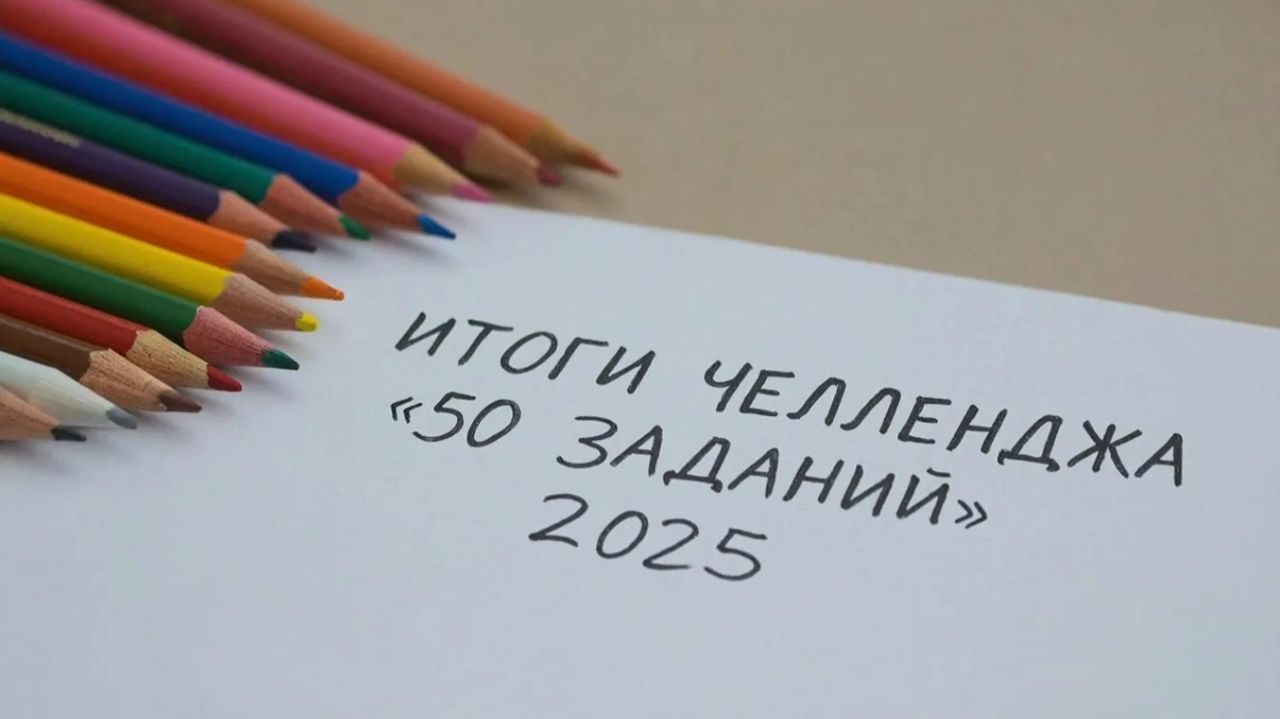 ИТОГИ ЧЕЛЛЕНДЖА
«50 ЗАДАНИЙ»
2025